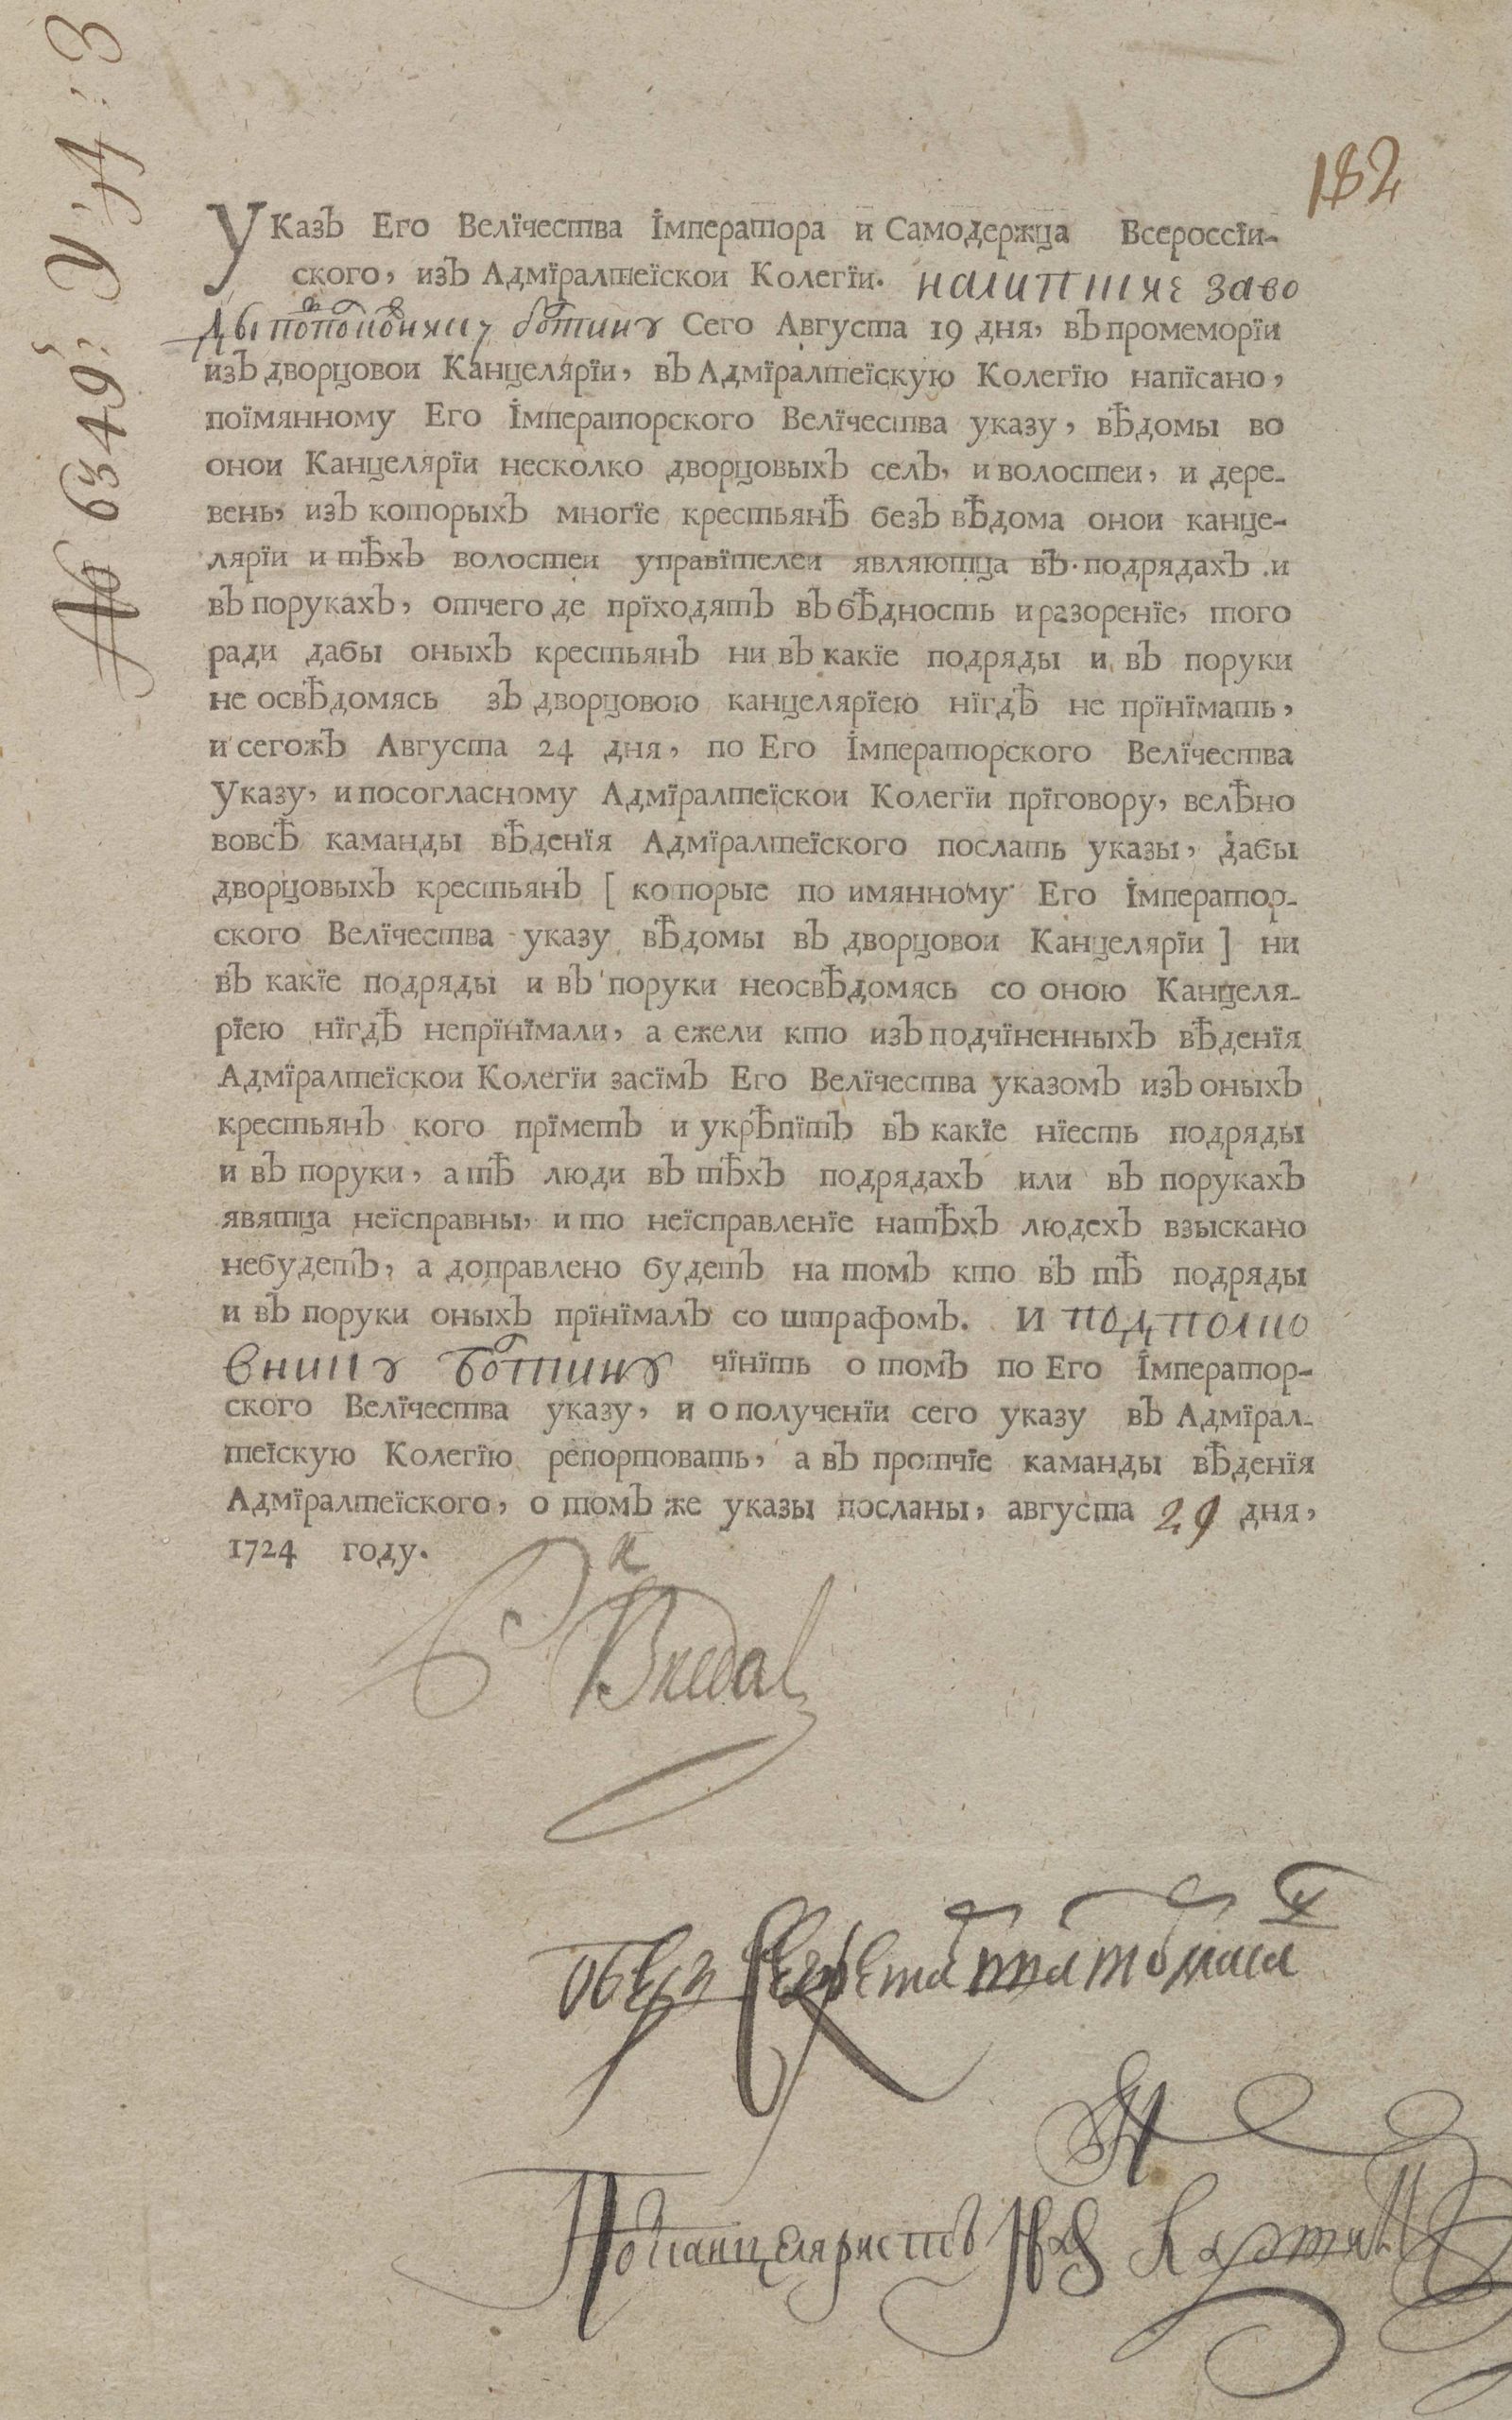 182
№ 6349
УКазЪ Его Велїчества Їмператора и Самодержца Всероссїи-
ского, изЪ Адмїралтеїскои Колегїи. налипшке заво
ды пополковнику ботину Сего Августа 19 дня, вЪ промеморїи
изЪ дворцовои Канцелярїи, вЪ Адмїралтеїскую Колегїю напїсано,
поїмянному Его Їмператорского Велїчества указу, вѢдомы во
онои Канцелярїи несколко дворцовыхЪ селЪ, и волостеи, и дере-
вень, изЪ которыхЪ многїе крестьянѢ безЪ вѢдома онои канце-
лярїи и тѢхЪ волостеи управїтелеи являютца вЪ подрядахЪ и
вЪ порукахЪ, отчего де прїходятЪ вЪ бѢдность и разоренїе, того
ради дабы оныхЪ крестьянЪ ни вЪ какїе подряды и вЪ поруки
не освѢдомясь зЪ дворцовою канцелярїею нїгдѢ не прїнїмать,
и сегожЪ Августа 24 дня, по Его Їмператорского Велїчества
Указу, и посогласному Адмїралтеїскои Колегїи прїговору, велѢно
вовсѢ каманды вѢденїя Адмїралтеїского послать указы, дабы
дворцовыхЪ крестьянЪ [ которые по имянному Его Їмператор-
ского Велїчества указу вѢдомы вЪ дворцовои Канцелярїи ] ни
вЪ какїе подряды и вЪ поруки неосвѢдомясь со оною Канцеля-
рїею нїгдѢ непрїнїмали, а ежели кто изЪ подчїненныхЪ вѢденїя
Адмїралтеїскои Колегїи засїмЪ Его Велїчества указомЪ изЪ оныхЪ
крестьянЪ кого прїметЪ и укрѢпїтЪ вЪ какїе нїесть подряды
и вЪ поруки, а тѢ люди вЪ тѢхЪ подрядахЪ или вЪ порукахЪ
явятца неїсправны, и то неїсправленїе натѢхЪ людехЪ взыскано
небудетЪ, а доправлено будетЪ на томЪ кто вЪ тѢ подряды
и вЪ поруки оныхЪ прїнїмалЪ со штрафомЪ. И подполко
внику ботину чїнїть о томЪ по Его Їмператор-
ского Велїчества указу, и о полученїи сего указу вЪ Адмїрал-
теїскую Колегїю репортовать, а вЪ протчїе каманды вѢденїя
Адмїралтеїского, о томЪ же указы посланы, августа 29 дня,
1724 году.
Bredal
Подканцеляристъ